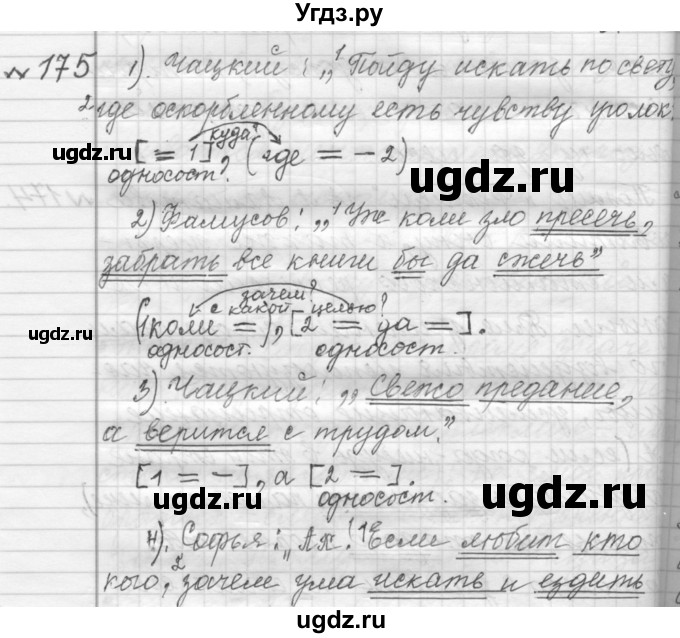 Угдз.ру
№ 175 1). Чацкий: „¹Пойду искать по свету,
²где оскорбленному есть чувству уголок.
куда?
[= 1], (где = – 2)
односост.
2) Фамусов: „¹Уж коли зло пресечь,
забрать все книги бы да сжечь”
зачем?
с какой целью?
(1 коли =), [2 = да =].
односост. односост.
3). Чацкий: „Свежо предание,
а верится с трудом.”
[1 = –], а [2 =].
односост.
4). Софья: „Ах! ¹Если любит кто
кого, ²зачем ума искать и ездить
ugdz.ru
ugdz.ru
ugdz.ru
ugdz.ru
ugdz.ru
ugdz.ru
ugdz.ru
ugdz.ru
ugdz.ru